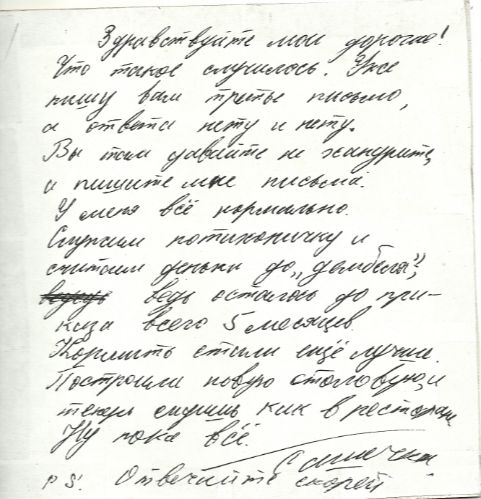 Здравствуйте мои дорогие!
Что такое случилось. Уже
пишу вам третье письмо,
а ответа нету и нету.
Вы там давайте не хандрите,
а пишите мне письма.
У меня всё нормально.
Служим потихоничку и
считаем деньки до „дембеля",
ведь осталось до при-
каза всего 5 месяцев.
Кормить стали ещё лучше.
Построили новую столовую и
теперь сидишь как в ресторане
Ну пока всё.
Сашечка
P S. Отвечайте скорей